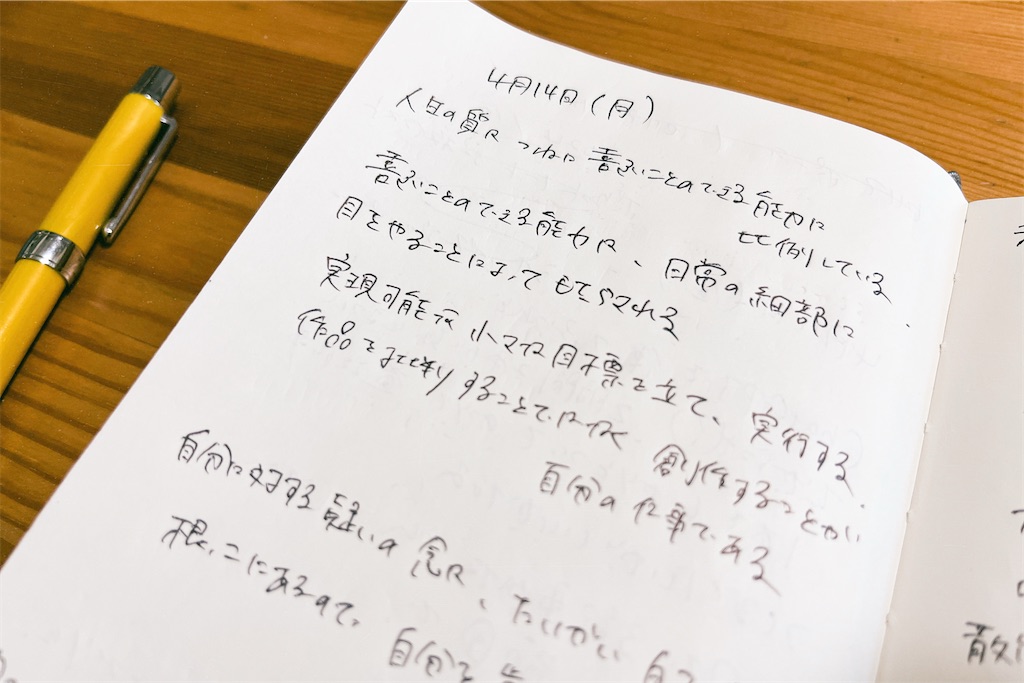 4月14日(月)
人生の質は つねに 喜ぶことのできる能力に
比例している.
喜ぶことのできる能力は、日常の細部に
目をやることによって もたらされる
実現可能な 小さな目標を立て、実行する.
作品を批判することではなく 創作することが
自分の仕事である.
自分に対する疑いの念は、たいがい 自
根っこにあるので、 自分を
散